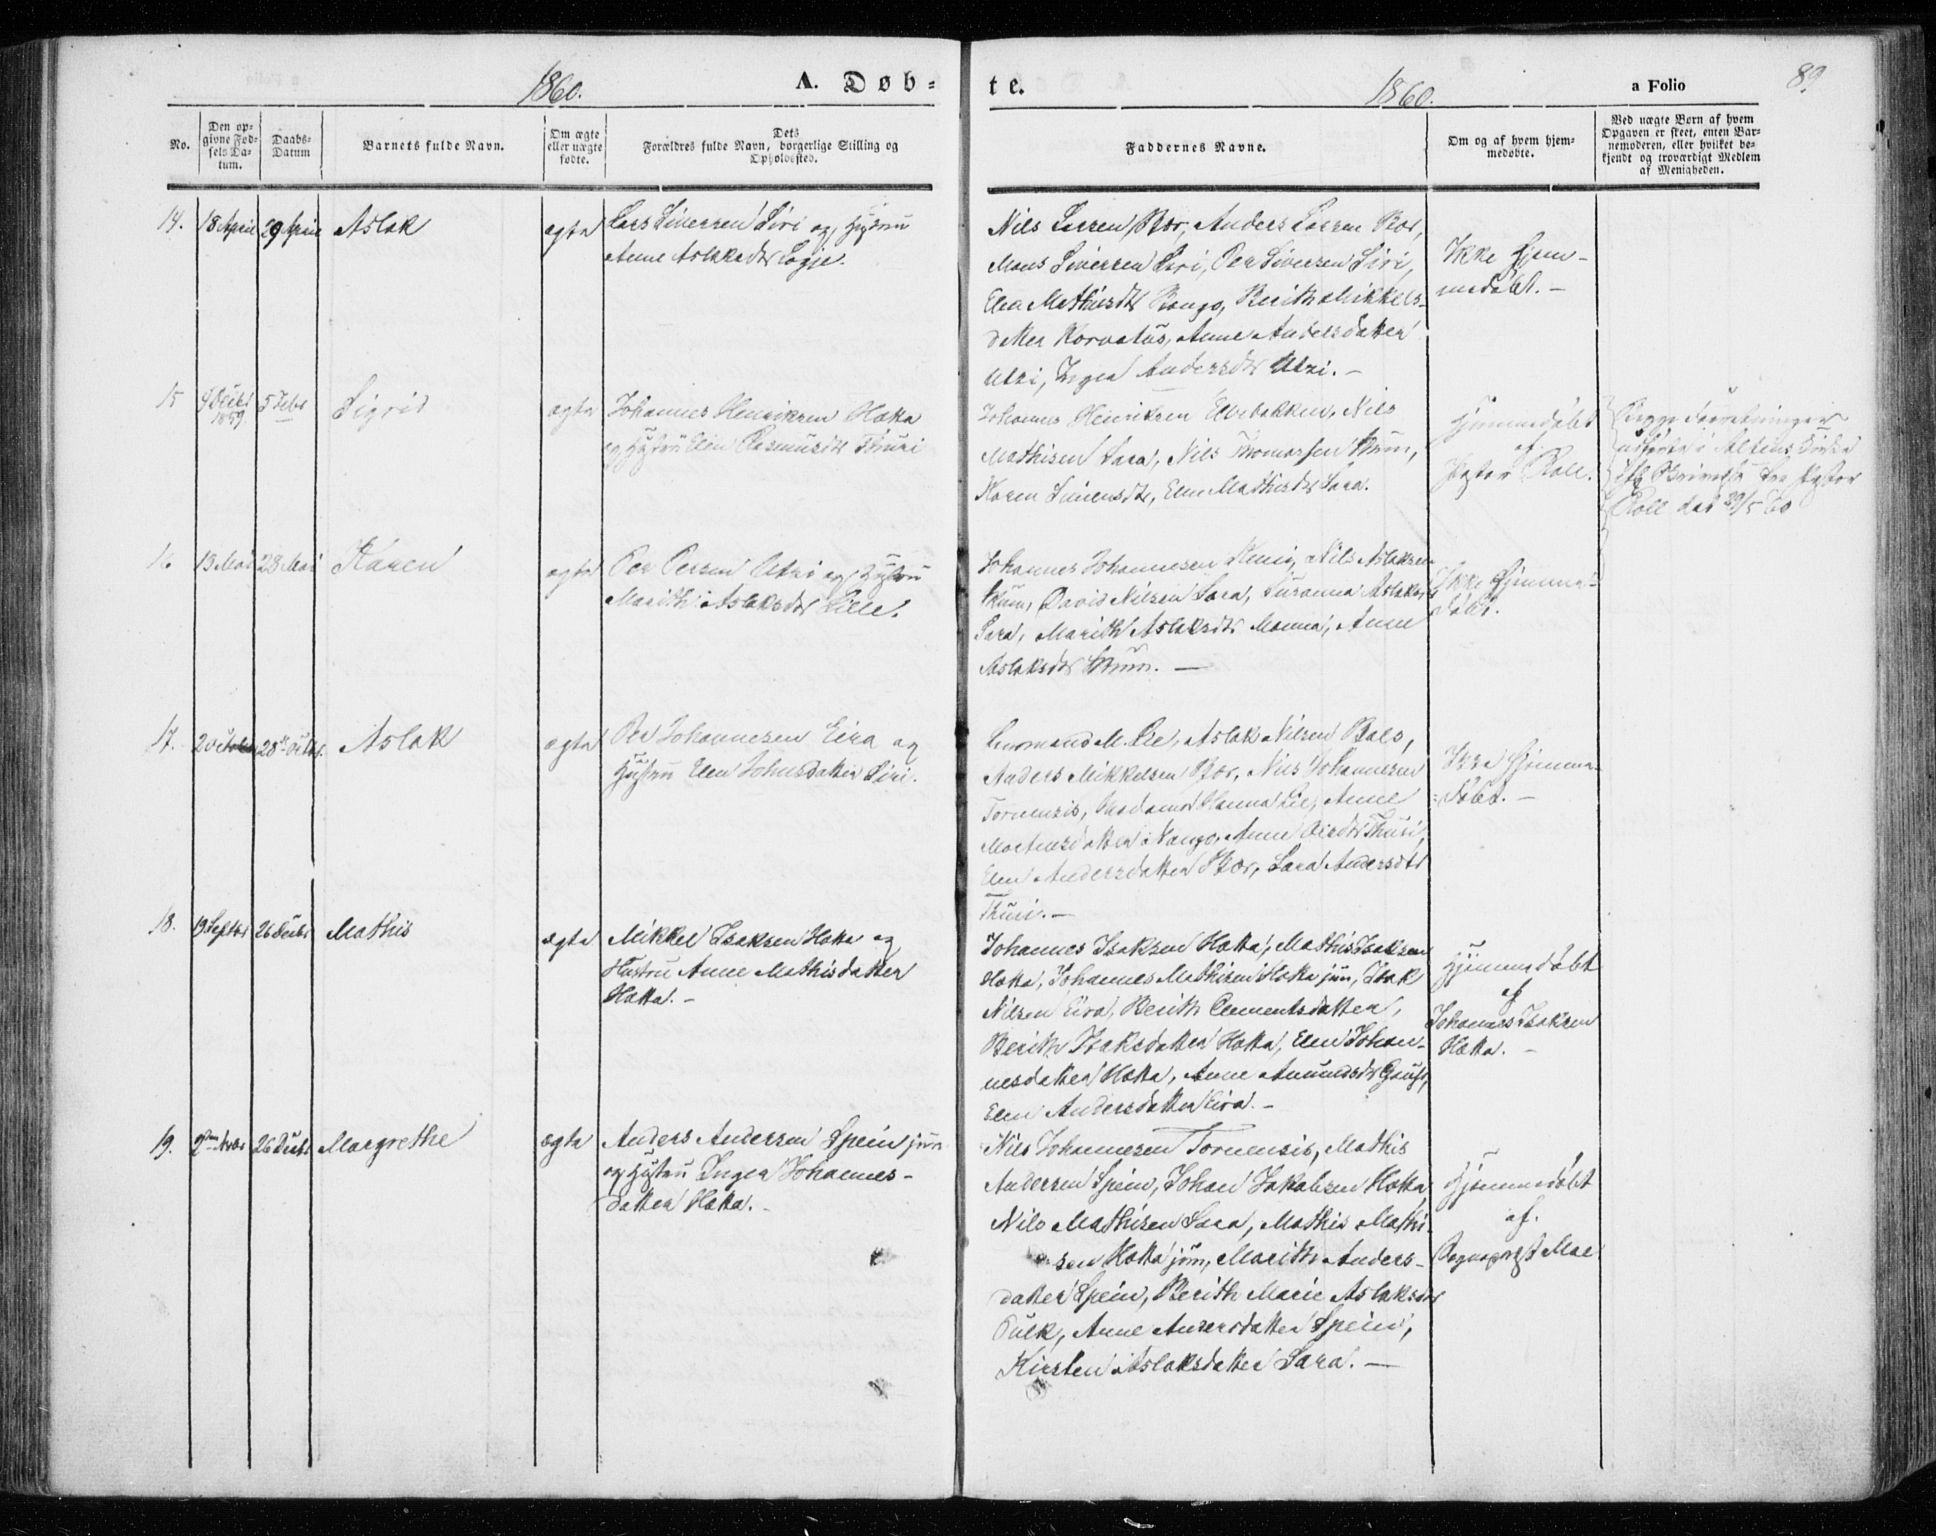 1860.
A. Døb-
te.
1860.
a Folio
89
No.
Den op-
givne Fød-
sels Da-
tum.
Daabs-
Datum
Barnets fulde Navn.
Om ægte
eller uægte
fødte.
Dets
Forældres fulde Navn, borgerlige Stilling og
Opholdssted.
Faddernes Navne.
Om og af hvem hjem-
medøbte.
Ved uægte Børn af hvem
Opgaven er skeet, enten Bar-
nemoderen, eller hvilket be-
kjendt og troværdigt Medlem
af Menigheden.
14.
18 April
29 April
Aslak
ægte
Lars Siversen Siri og Hustru
Anne Aslaksdtr Logje.
Nils Larsen Bær, Anders Larsen Bær,
Mons Siversen Siri, Per Siversen Siri,
Elen Mathisdtr Rango, Berith Mikkels-
datter Korvatus, Anne Andersdatter
Utzi, Inger Andersdtr Utzi. -
Ikke Hjem-
medøbt. -
15
9 Decbr
1859
5 Febr
Sigrid
ægte
Johannes Henriksen Hætta
og Hustru Elen Rasmusdtr Thuri
Johannes Henriksen Elvebakken, Nils
Mathisen Sara, Nils Thomassen Skum,
Karen Simensdtr, Elen Mathisdtr Sara.
Hjemmedøbt
af
Pastor Roll.
Begge Forretninger
udførte i Altens Kirke
Pastor
Roll dat 29/5 60
16
13 Mai
28 Mai
Karen
ægte
Per Persen Utzi og Hustru
Marith Aslaksdtr Lille.
Johannes Johannesen Kemi, Nils Aslaksen
Skum, David Nilsen Sara, Susanna Aslaksdtr
Sara, Marith Aslaksdtr Menna, Anne
Aslaksdtr Skum. -
Ikke Hjemme-
døbt.
17.
28de Octbr.
Aslak
ægte
Per Johannesen Eira og
Hustru Elen Johnsdatter Siri.
Normand M. Lie, Aslak Nilsen Bals,
Anders Mikkelsen Bær, Nils Johannesen
Tornensis, Madame Hanna Lie, Anne
Mortensdatter Nango, Anne Persdtr Thuri,
Elen Andersdatter Bær, Sara Andersdtr
Thuri. -
Ikke Hjemme-
døbt. -
18.
19 Septbr
26 Decbr
Mathis
ægte
Mikkel Isaksen Hætta og
Hustru Anne Mathisdatter
Hætta. -
Johannes Isaksen Hætta, Mathis Isaksen
Hætta, Johannes Mathisen Hætta jun, Isak
Nilsen Eira, Berith Clementsdatter,
Berith Isaksdatter Hætta, Elen Johan-
nesdatter Hætta, Anne Amundsdtr Gaup,
Elen Andersdatter Eira. -
Hjemmedøbt
af
Johannes Isaksen
Hætta. -
19.
26 Decbr
Margrethe
ægte
Anders Andersen Spein jun
og Hustru Inger Johannes-
datter Hætta. -
Nils Johannesen Tornensis, Mathis
Andersen Spein, Johan Jakobsen Hætta
Nils Mathisen Sara, Mathis Mathi-
sen Hætta jun, Marith Anders-
datter Spein, Berith Marie Aslaksdtr
Pulk, Anne Andersdatter Spein,
Kirsten Aslaksdatter Sara. -
Hjemmedøbt
af.
Sognepræst Moe